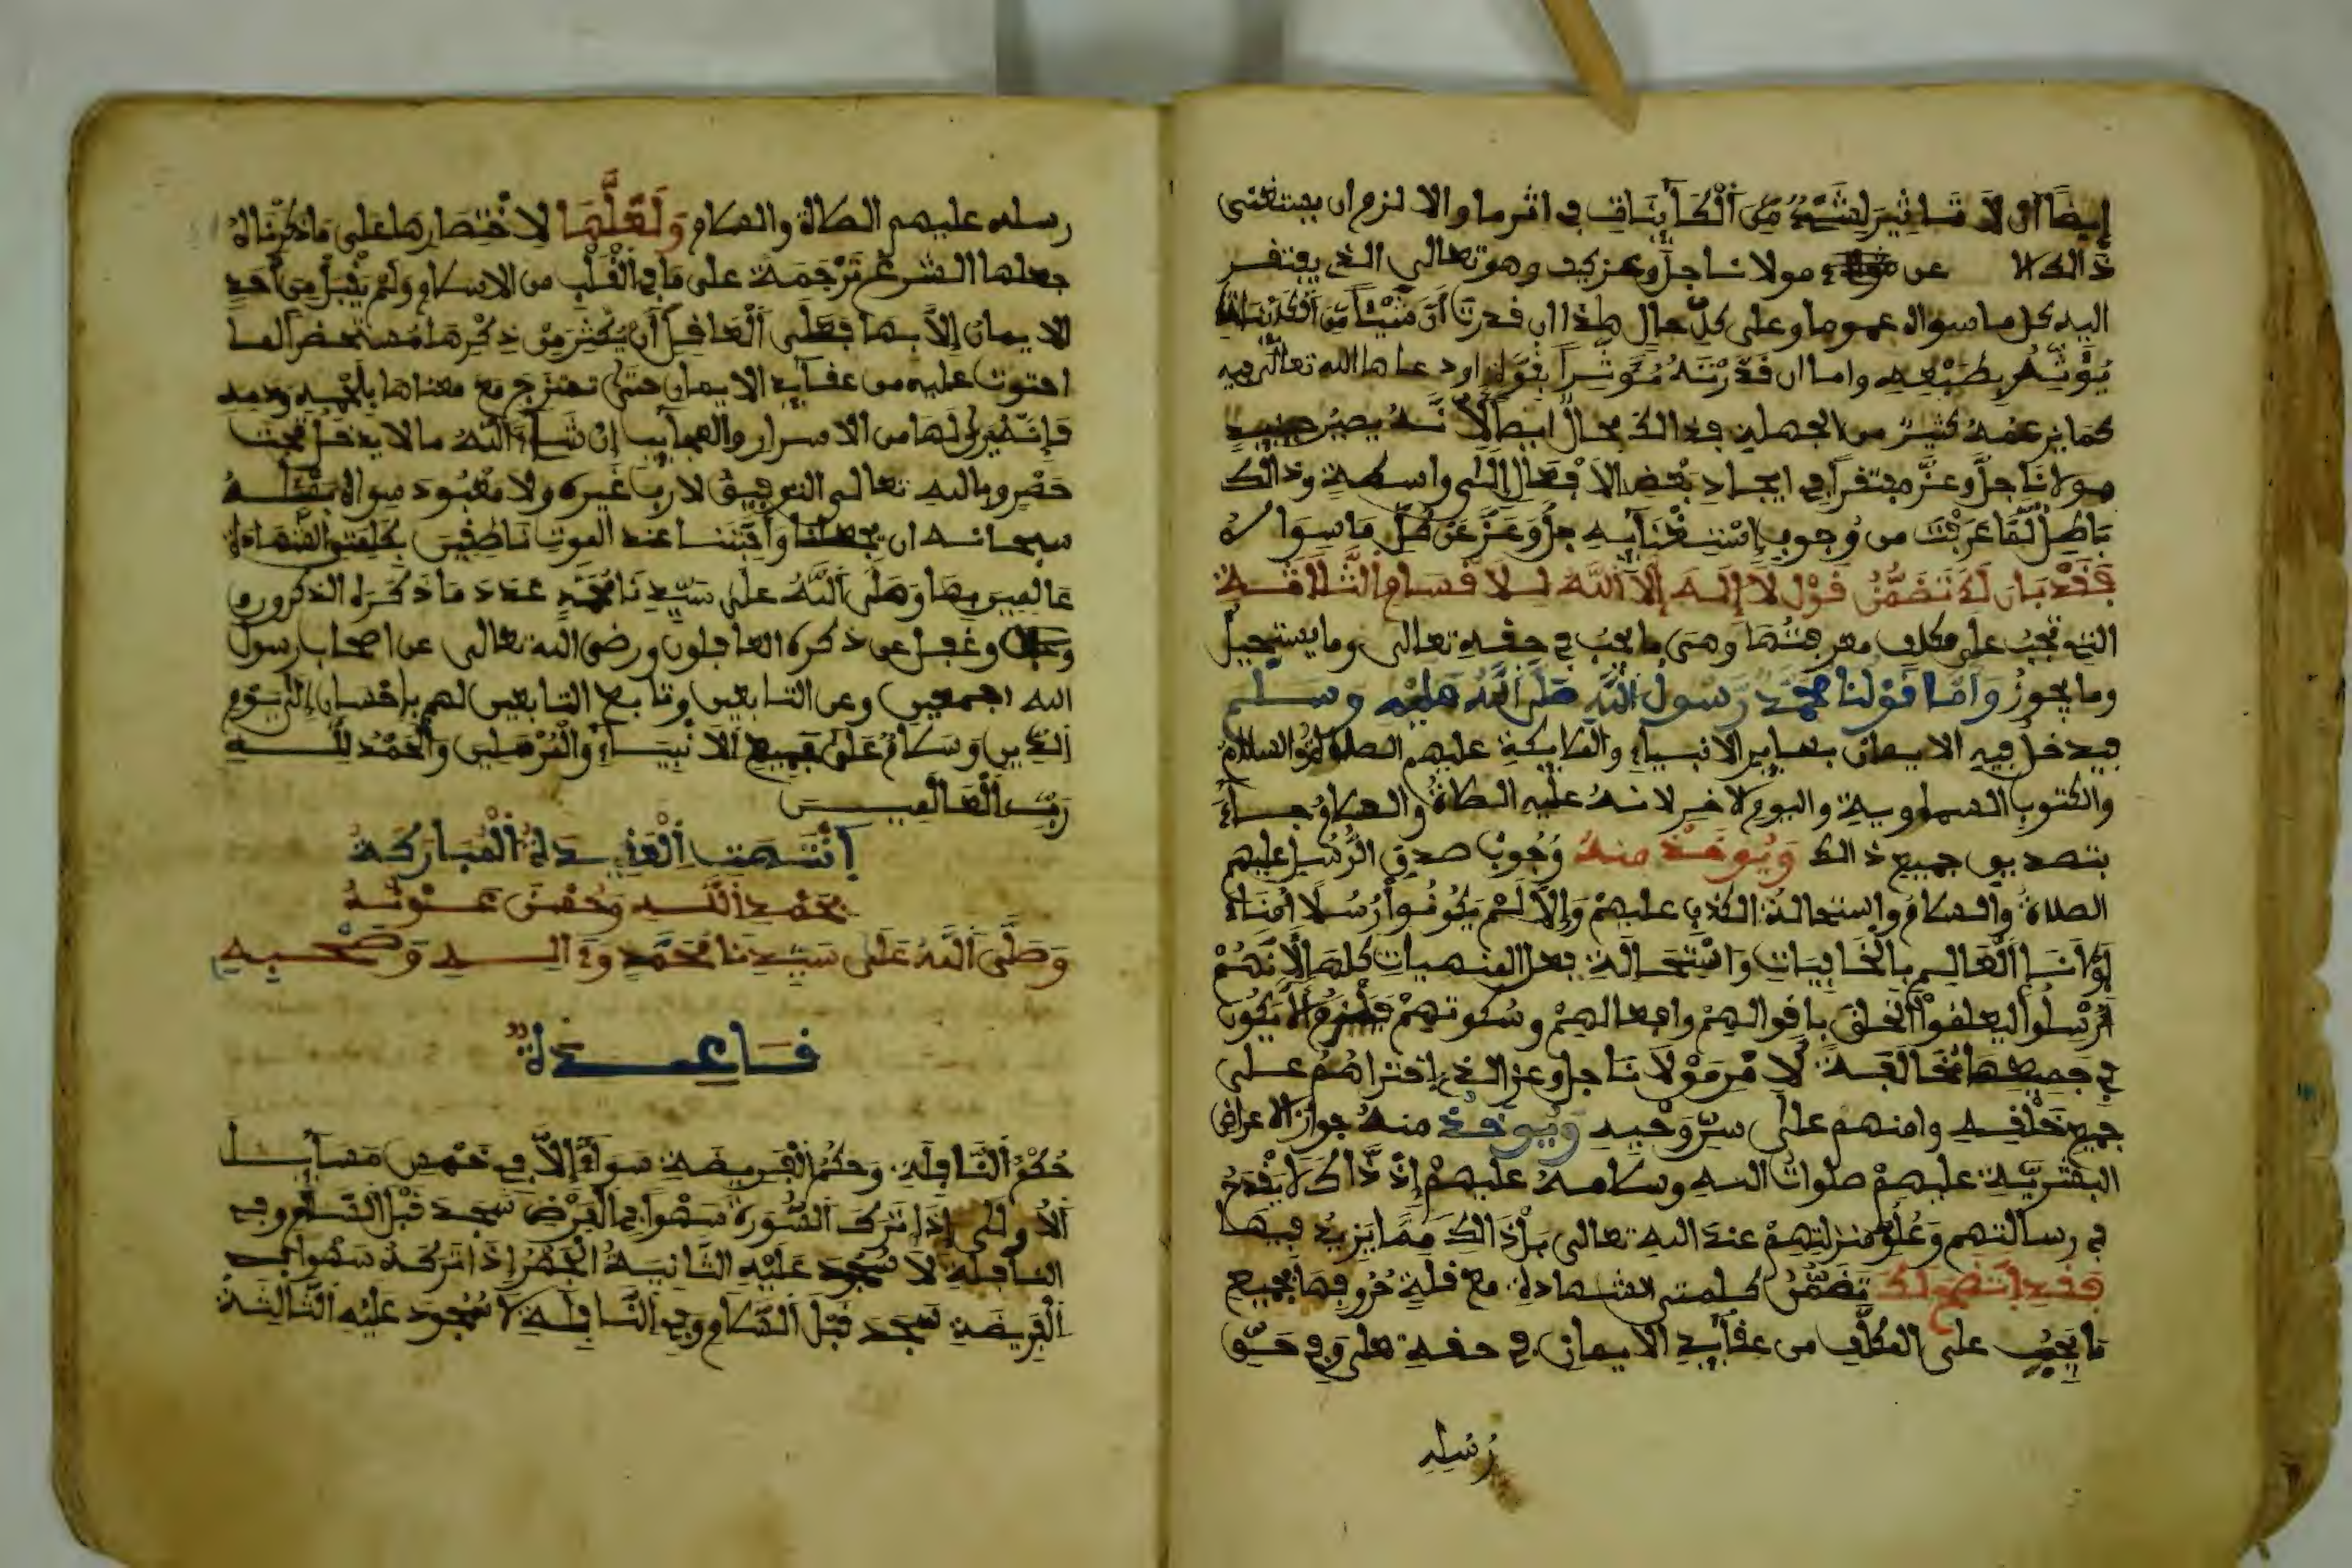 إيضا أن لا تاثير لشيء من الكاينات في اثر ما والا لزم ان يستغنى
ذالك الا عن مولانا جل وعز كيف وهو تعالى الذي يفتقر
اليه كل ما سواه عموما وعلى كل حال هذا ان قدرت أن شيئا من الكاينات
يؤثر بطبعه واما ان قدرته مؤثرا بقوة اود عاها الله تعالى فيه
كما يزعمه كثير من الجهلة فذالك محال ايضا لأنه يصير حينيذ
مولانا جل وعز مفتقرا في ايجاد بعض الافعال إلى واسطة وذالك
باطل لما عرفت من وجوب استغنايه جل وعز عن كل ما سواه
فقد بان لك تضمن قول لا إله إلا الله للاقسام الثلاثة
التي تجب على مكلف معرفتها وهي ما يجب في حقه تعالى وما يستحيل
وما يجوز وأما قولنا محمد رسول الله صلى الله عليه وسلم
فيدخل فيه الايمان بساير الانبياء والملايكة عليهم الصلاة والسلام
والكتوب السماوية واليوم لاخر لانه عليه الصلاة والسلام جاء
بتصديق جميع ذالك ويوخذ منه وجوب صدق الرسل عليهم
الصلاة والسلام واستحالة الكذب عليهم وإلا لم يكونوا رسلا أمناء
لمولانا العالم بالخفيات واستحالة فعل المنهيات كلها لأنهم
أرسلوا ليعلموا الخلق باقوالهم وافعالهم وسكوتهم فيلزم ألا يكون
في جميعها مخالفة لأمر مولانا جل وعز الذي اختراهم على
جميع خلقه وامنهم على سر وحيه ويوخذ منه جواز الاعراض
البشرية عليهم صلوات الله وسلامه عليهم إذ ذاك لا يقدح
في رسالتهم وعلو منزلتهم عند الله تعالى بل ذالك مما يزيد فيها
فقد اتضح لك تضمن كلمتي الشهادة مع قلة حروفها لجميع
ما يجب على المكلف من عقايد الايمان في حقه تعلى وفي حق
رسله
رسله عليهم الصلاة والسلام ولعلها لاختصارها على ما ذكرناه
جعلها الشرع ترجمة على ما في القلب من الاسلام ولم يقبل من أحد
الايمان إلا بها فعلى العاقل أن يكثر من ذكرها مستحضرا لما
احتوت عليه من عقايد الايمان حتى تمتزج مع معناها بلحمه ودمه
فإنه يرى لها من الاسرار والعجايب إن شاء الله ما لا يدخل تحت
حصر وبالله تعالى التوفيق لا رب غيره ولا معبود سواه نسئله
سبحانه ان يجعلنا وأحبتنا عند الموت ناطقين بكلمتي الشهادة
عالمين بها وصلى الله على سيدنا محمد عدد ما ذكره الذكرون
وغفل عن ذكره الغافلون ورضي الله تعالى عن اصحاب رسول
الله اجمعين وعن التابعين وتابع التابعين لهم بإحسان إلى يوم
الدين وسلام على جميع الانبياء والمرسلين والحمد لله
رب العالمين
انتهت العقيدة المباركة
بحمد الله وحسن عونه
وصلى الله على سيدنا محمد وءاله وصحبه
فاعدة
حكم النافلة وحكم الفريضة سواء إلا في خمس مسايل
الأولى إذا ترك السورة سهوا في الفرض سجد قبل السلم وفي
النافلة لا سجود عليه الثانية الجهر إذا تركه سهوا في
الفريضة سجد قبل السلام وفي النافلة لا سجود عليه الثالثة